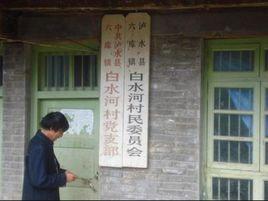 中共泸水县
六库镇
白水河村党支部
泸水县
六库镇
白水河村民委员会